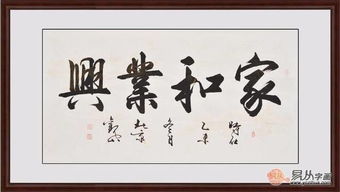 家和業興
時在
乙未
冬月
北京
易从字画